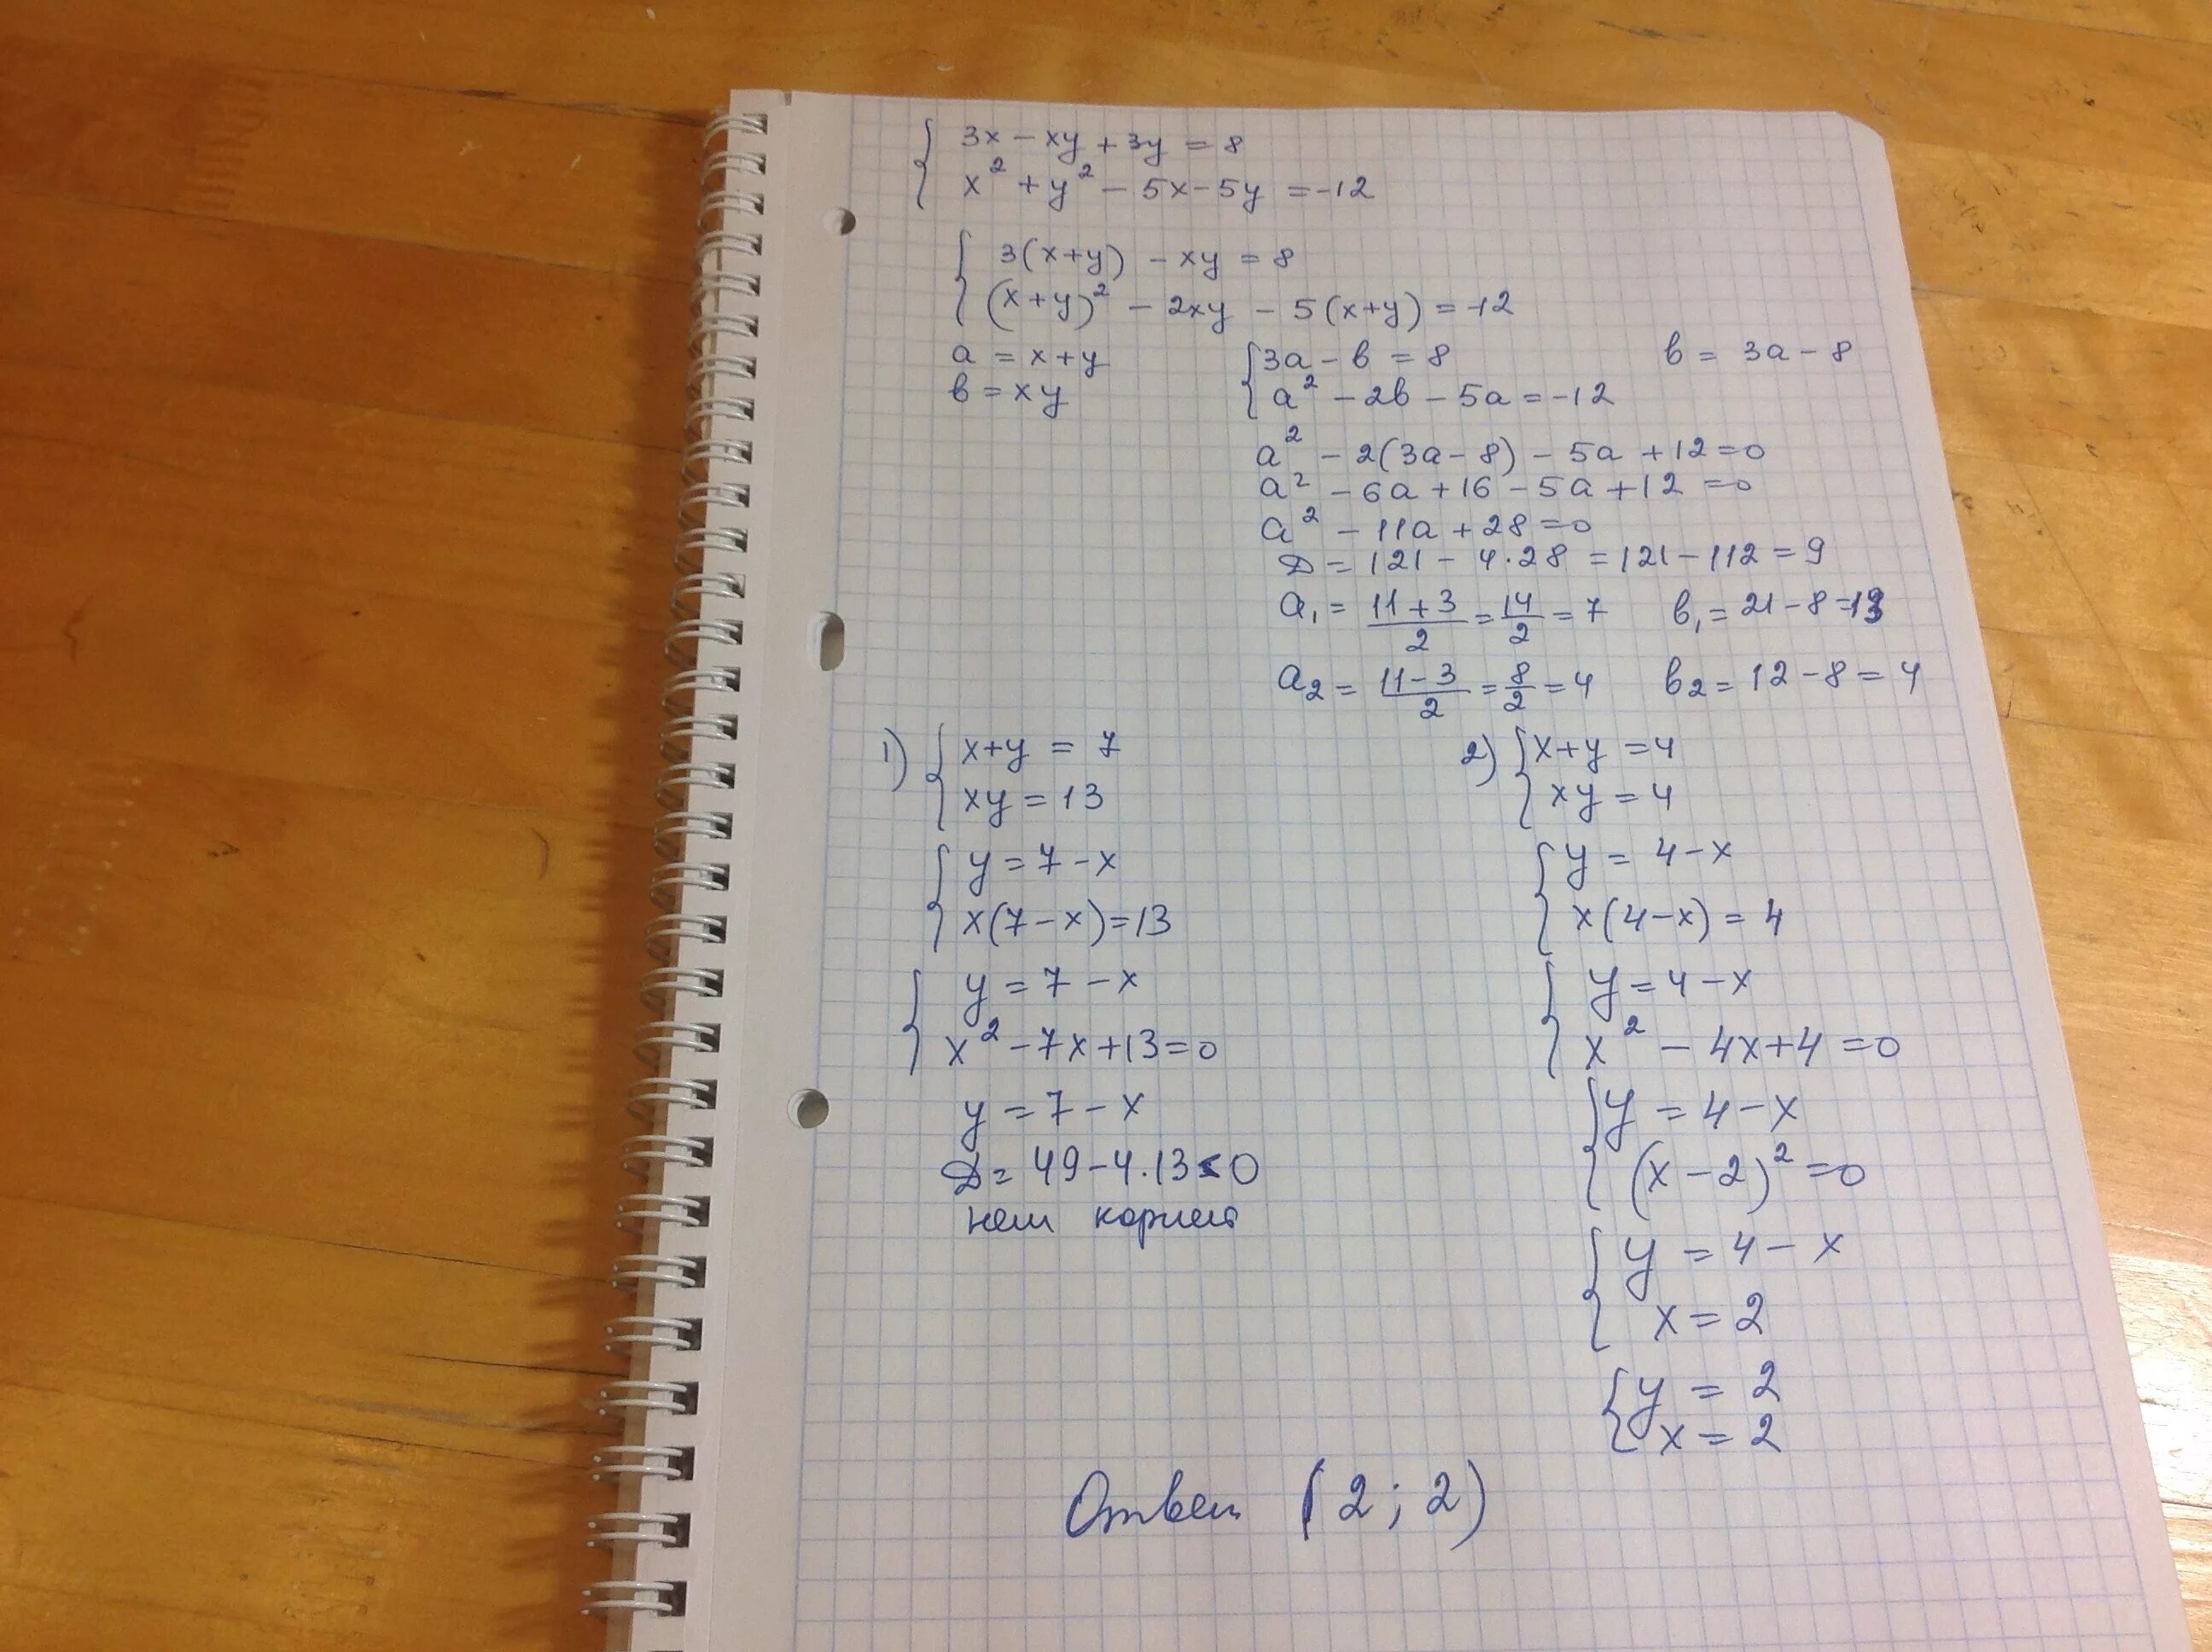 3x - xy + 3y = 8
x² + y² - 5x - 5y = -12
3(x+y) - xy = 8
(x+y)² - 2xy - 5(x+y) = -12
a = x+y
в = xy
3a - в = 8
a² - 2в - 5a = -12
в = 3a - 8
a² - 2(3a - 8) - 5a + 12 = 0
a² - 6a + 16 - 5a + 12 = 0
a² - 11a + 28 = 0
D = 121 - 4·28 = 121 - 112 = 9
a₁ = (11+3)/2 = 14/2 = 7 в₁ = 21 - 8 = 13
a₂ = (11-3)/2 = 8/2 = 4 в₂ = 12 - 8 = 4
1) { x+y = 7
xy = 13
y = 7 - x
x(7-x) = 13
y = 7 - x
x² - 7x + 13 = 0
y = 7 - x
D = 49 - 4·13 < 0
нет корней
2) { x+y = 4
xy = 4
y = 4 - x
x(4-x) = 4
y = 4 - x
x² - 4x + 4 = 0
y = 4 - x
(x - 2)² = 0
y = 4 - x
x = 2
y = 2
x = 2
Ответ (2; 2)